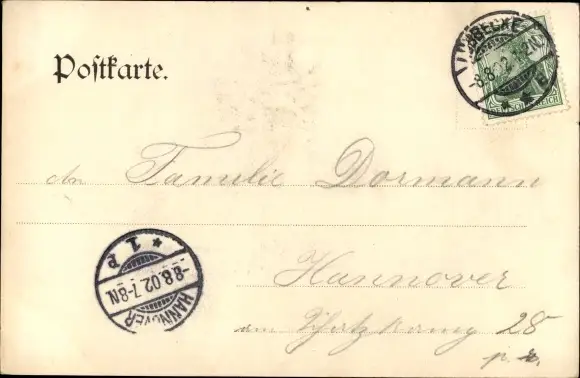 Postkarte.
LÜBBECKE
-8.8.02
DEUTSCHES REICH
Familie Dormann
Hannover
am 28
HANNOVER
-8.8.02.7-8N.
* 1 P